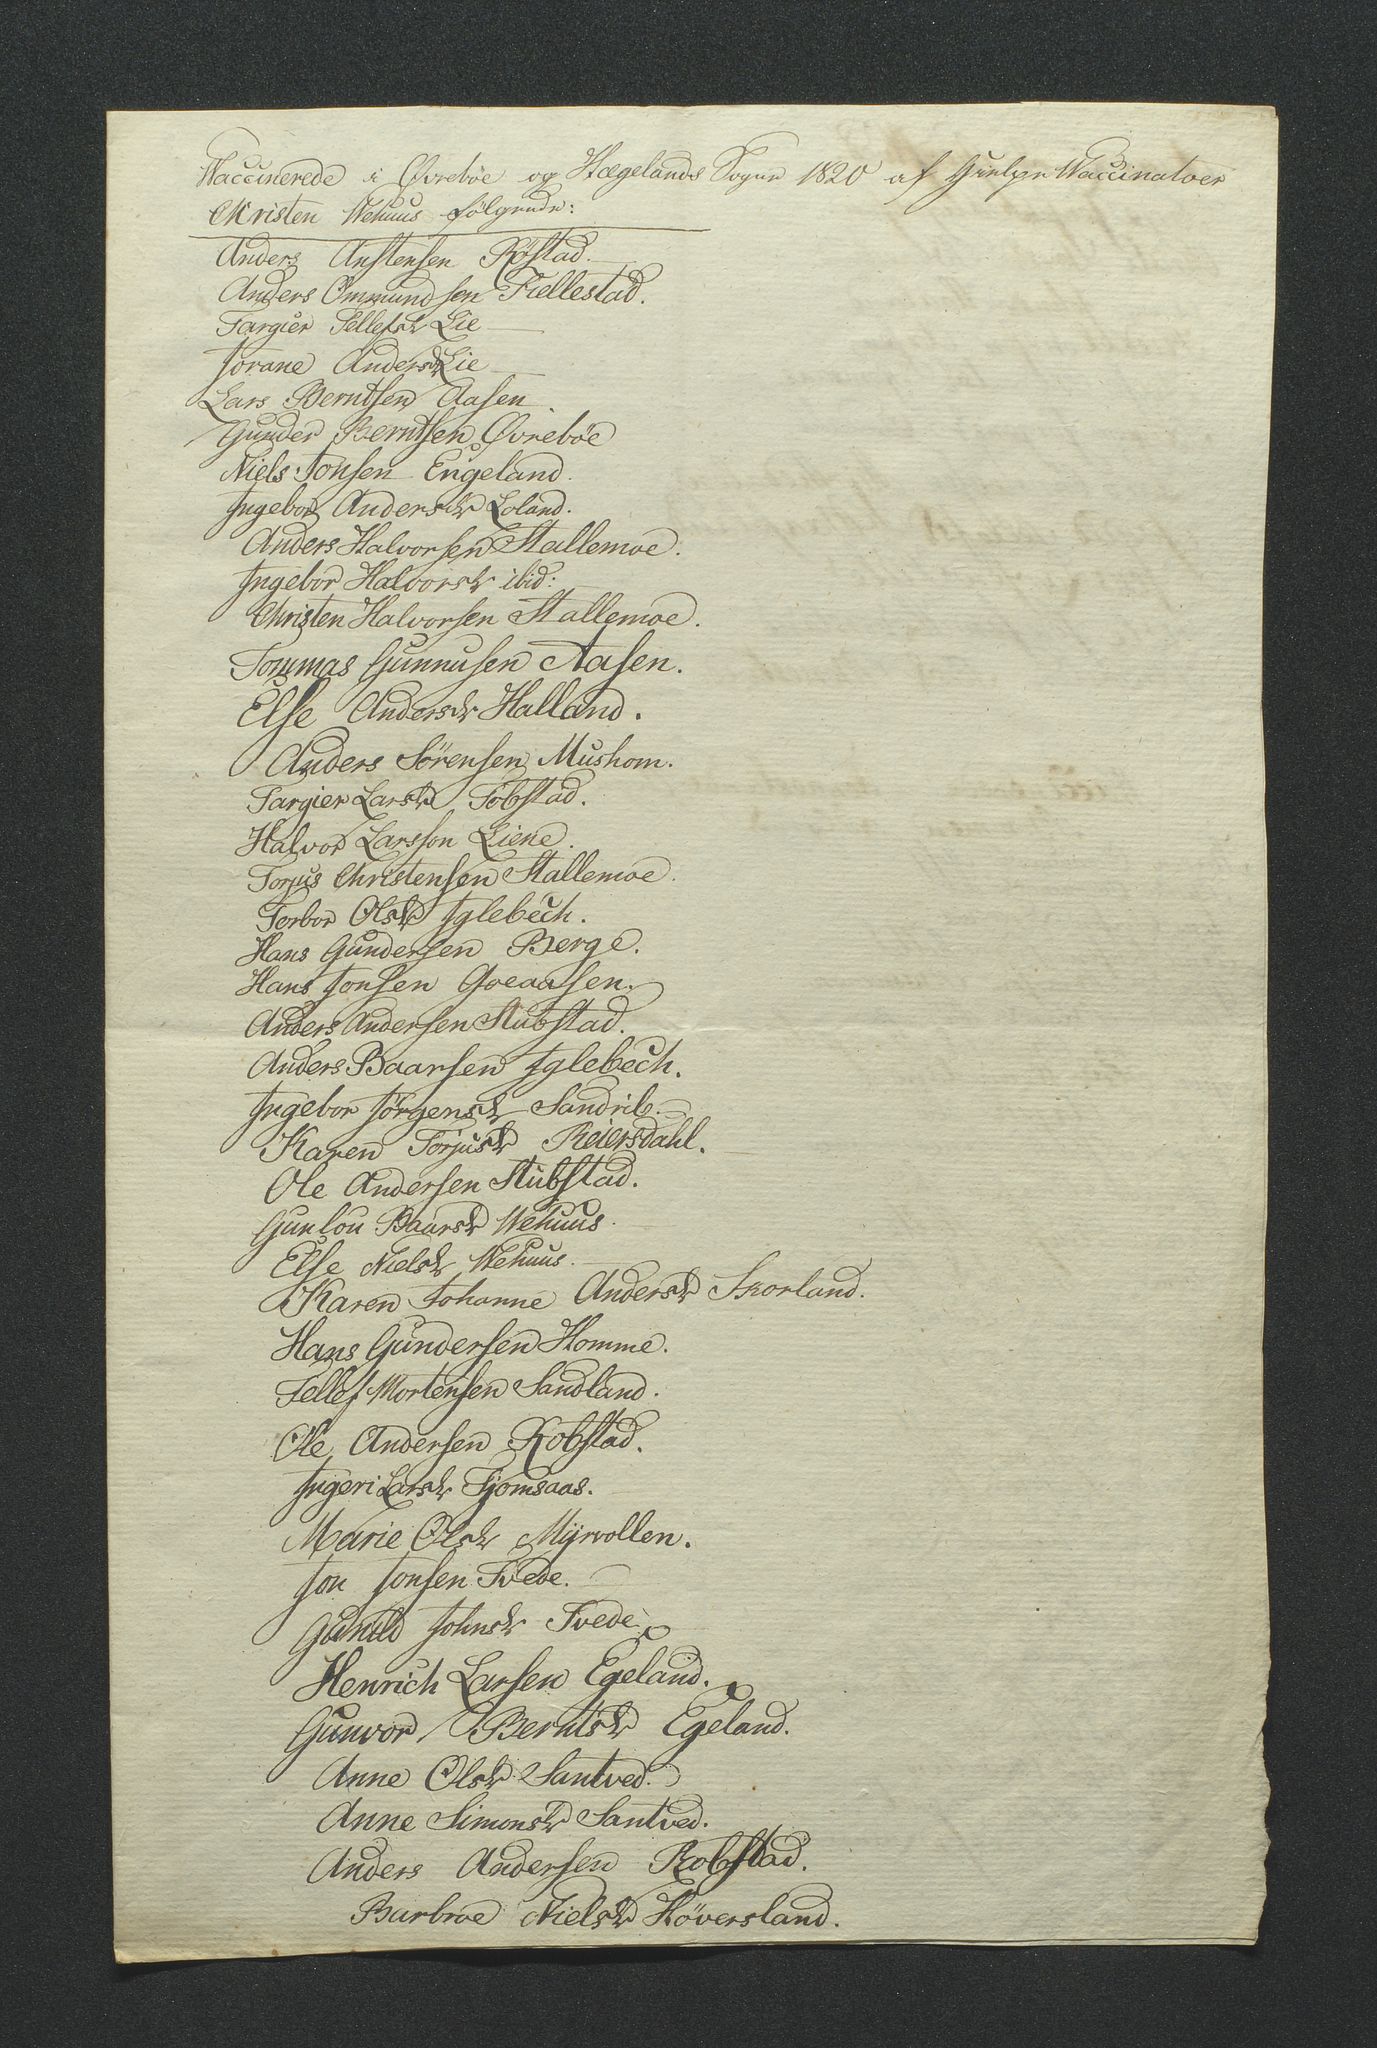 Vaccinerede i Øvrebøe og Hægelands Sogne 1820 af Hielpe Vaccinatoer
Christen Wehuus følgende:
Anders Anstensen Røstad.
Anders Ommundsen Fiellestad.
Targier Tellefsdr Lie
Jorane Andersdr Lie
Lars Berntsen Aasen
Gunder Berntsen Øvrebøe
Niels Jonsen Engeland.
Ingebor Andersdr Loland.
Anders Halvorsen Stallemoe.
Ingebor Halvorsdr ibid:
Christen Halvorsen Stallemoe.
Tommas Gunnusen Aasen.
Else Andersdr Halland.
Anders Sörensen Mushom.
Targier Larsdr Fobstad.
Halvor Larsson Liene.
Torjus Christensen Stallemoe.
Torbor Olsdr Iglebech.
Hans Gundersen Berge.
Hans Jonsen Goeaasen.
Anders Andersen Stubstad.
Anders Baarsen Iglebech.
Ingebor Jörgensdr Sandrib.
Karen Torjusdr Reiersdahl.
Ole Andersen Stubstad.
Gunlou Baarsdr Wehuus.
Else Nielsdr Wehuus.
Karen Johanne Andersdr Skorland.
Hans Gundersen Homme.
Tellef Mortensen Sandland.
Ole Andersen Robstad.
Ingeri Larsdr Fjomsaas.
Marie Olsdr Myrvollen.
Jon Jonsen Tvede.
Gunild Johnsdr Tvede.
Henrich Larsen Egeland.
Gunvor Berntsdr Egeland.
Anne Olsdr Santved.
Anne Simonsdr Santved.
Anders Andersen Robstad.
Barbroe Nielsdr Höversland.